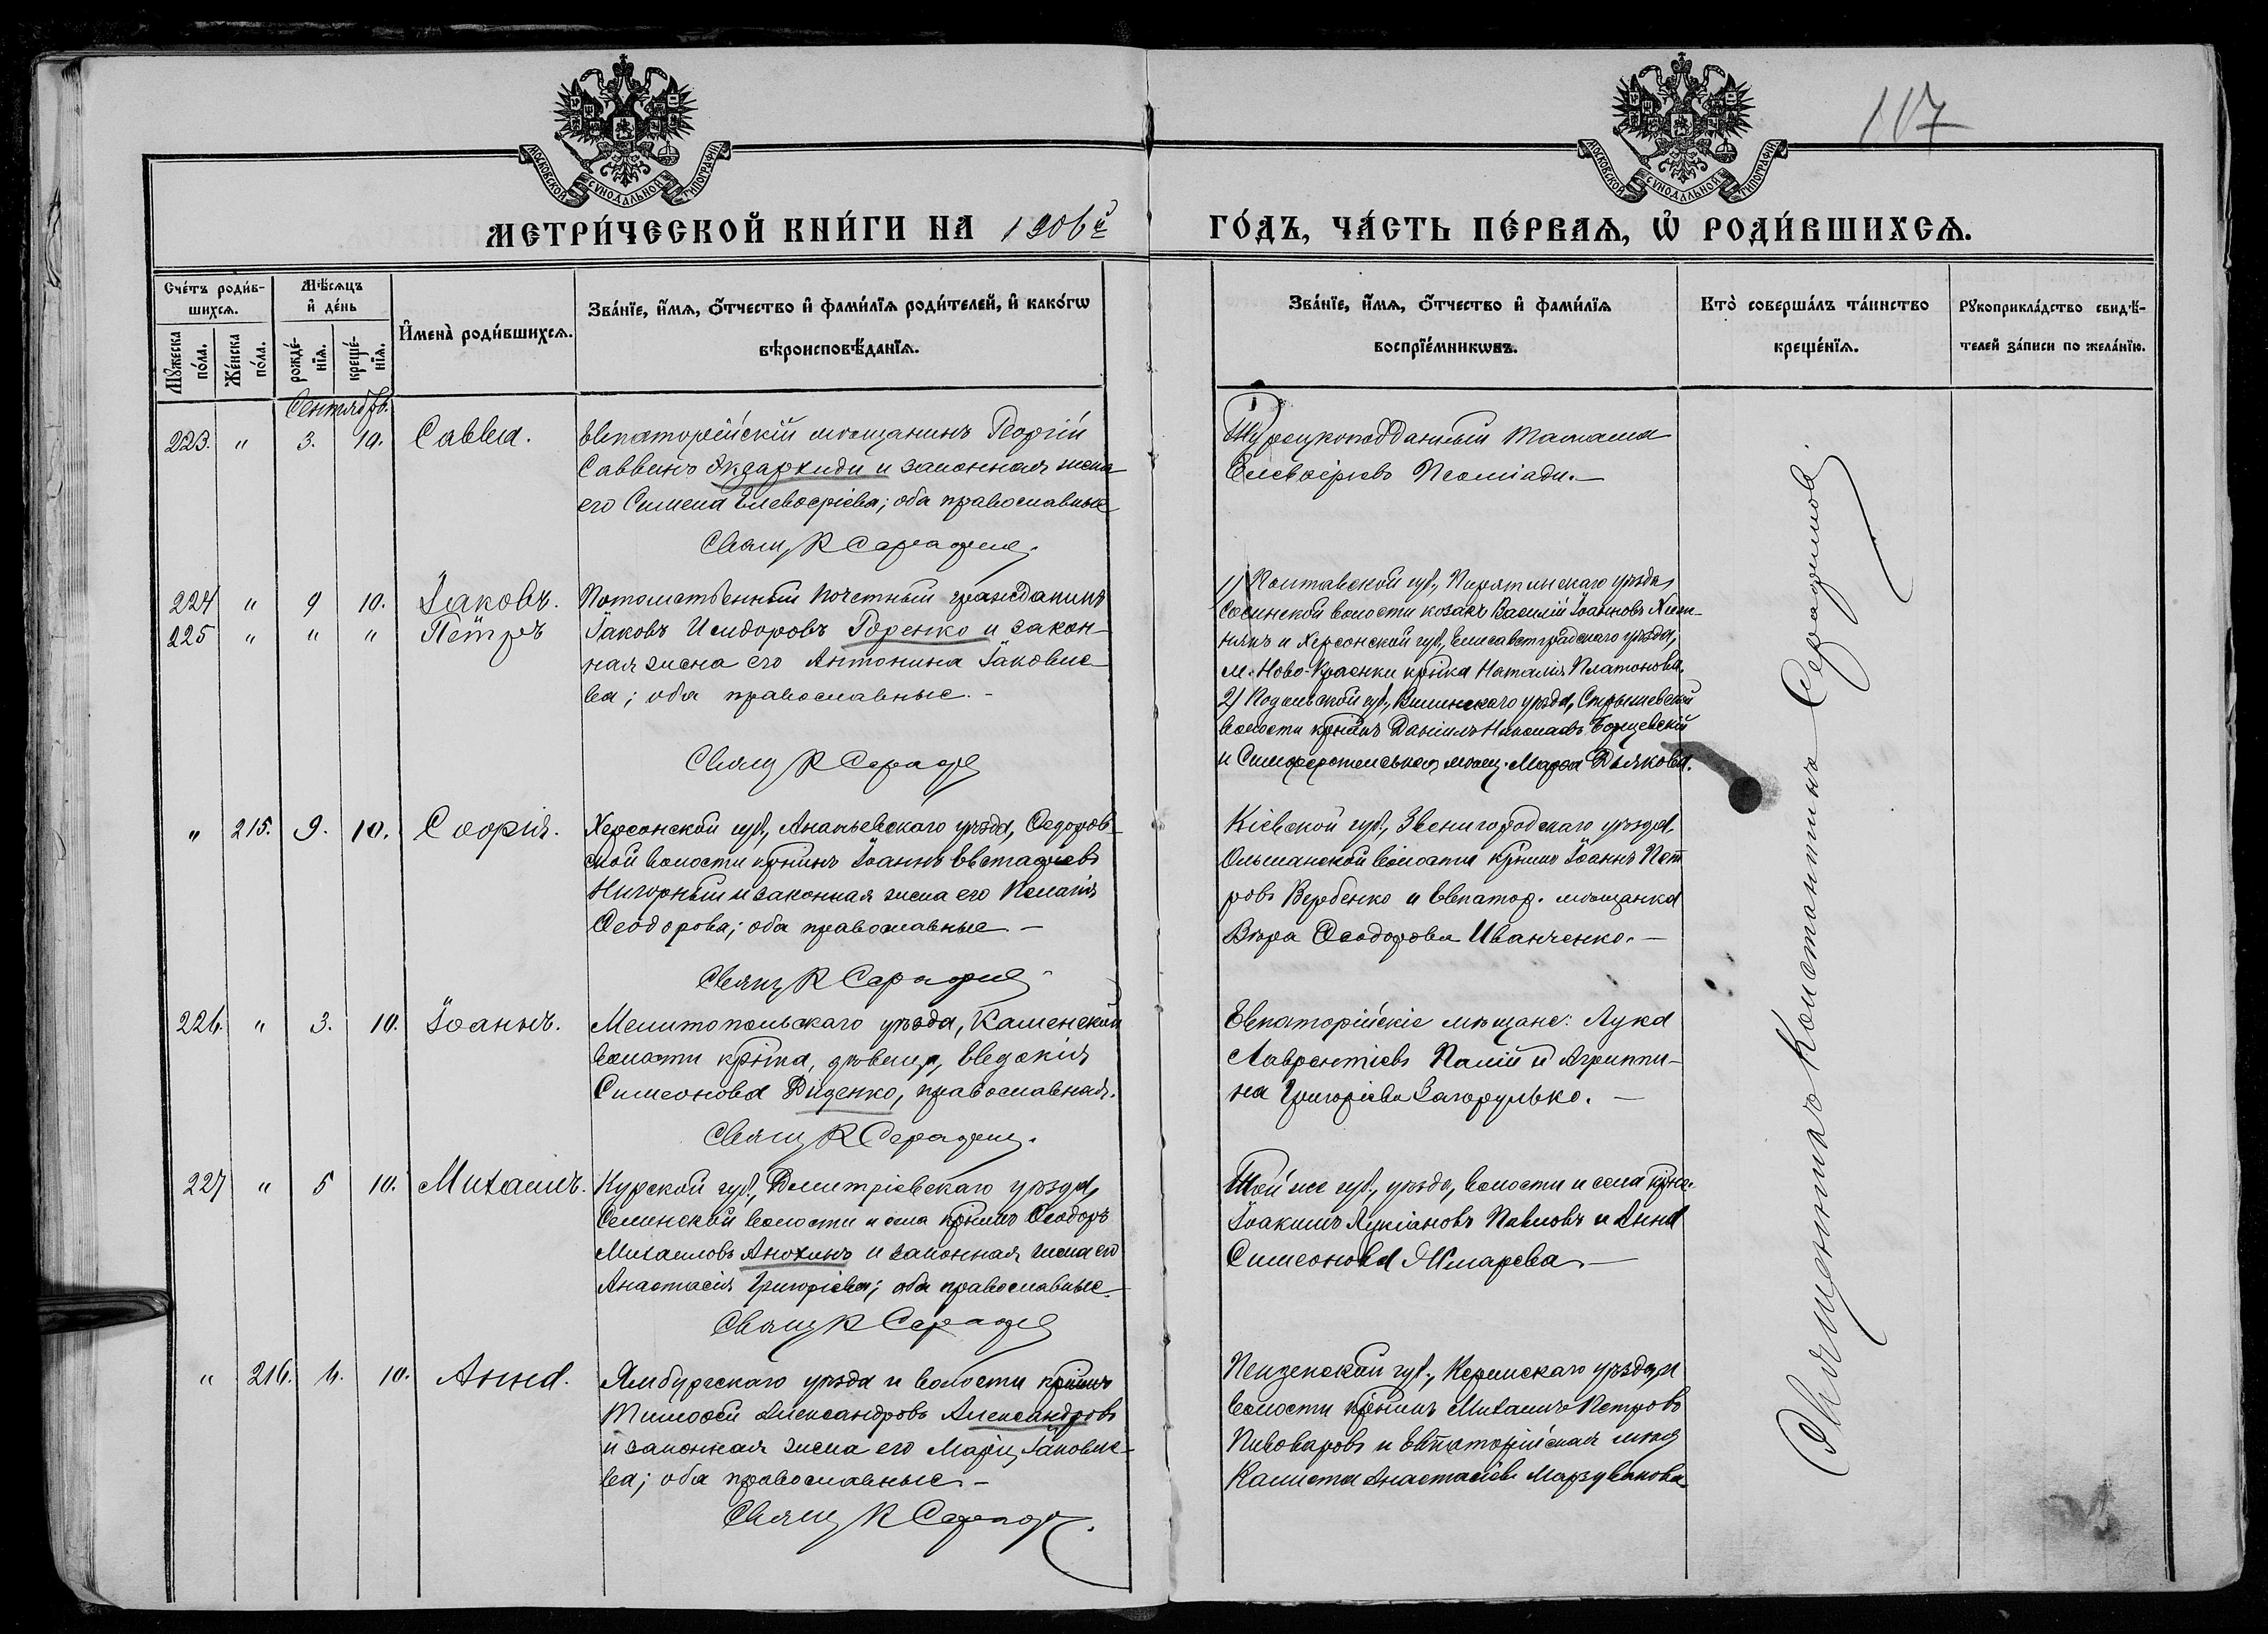 117
МОСКОВСКОЙ СѴНОДАЛЬНОЙ ТИПОГРАФІИ
МОСКОВСКОЙ СѴНОДАЛЬНОЙ ТИПОГРАФІИ
МЕТРИ́ЧЕСКОЙ КНИ́ГИ НА 1906й ГО́ДЪ, ЧА́СТЬ ПЕ́РВАѦ, Ѡ҆ РОДИ́ВШИХСѦ.
Сче́тъ роди́в-
шихсѧ.
Мꙋжеска по́ла.
Же́нска по́ла.
Мѣ́сѧцъ
и҆ де́нь
рожде́-нїѧ.
креще́-нїѧ.
И҆мена̀ роди́вшихсѧ.
Зва́нїе, и҆́мѧ, ѻ҆́тчество и҆ фами́лїѧ роди́телей, и҆ како́гѡ
вѣроисповѣ́данїѧ.
Зва́нїе, и҆́мѧ, ѻ҆́тчество и҆ фами́лїѧ
воспрїе́мникѡвъ.
Кто̀ соверша́лъ та́инство
креще́нїѧ.
Рꙋкоприкла́дство свидѣ́-
телей за́писи по жела́нїю.
Сентябрь.
223. " 3. 10. Савва.
Евпаторійскій мѣщанинъ Георгій
Саввинъ Экзархиди и законная жена
его Симела Елевферіева; оба православные
Свящ К Серафим.
Турецкоподданный
Елевферіевъ
224 " 9 10. Іаковъ.
225 " " " Петръ
Потомственный почетный гражданинъ
Іаковъ Исидоровъ Горенко и закон-
ная жена его Антонина Іаковле-
ва; оба православные. -
Свящ К Сераф
1) Полтавской губ., Пирятинскаго уѣзда,
волости козакъ Василій Іоанновъ
и Херсонской губ., Елисаветградскаго уѣзда,
м. Ново-Украенки кр-нка Наталія Платонова.
2) Подольской губ., уѣзда,
волости кр-нинъ Даніилъ Николаевъ
и Симферопольская мѣщ. Марфа Дьякова.
" 215. 9. 10. Софія.
Херсонской губ., Ананьевскаго уѣзда, Федоров-
ской волости кр-нинъ Іоаннъ Евстафіевъ
и законная жена его Пелагія
Феодорова; оба православные. -
Свящ К Серафим
Кіевской губ., Звенигородскаго уѣзда,
Ольшанской волости кр-нинъ Іоаннъ Пет
ровъ Вербенко и Евпатор. мѣщанка
Вѣра Феодорова Иванченко. -
226. " 3. 10. Іоаннъ.
Мелитопольскаго уѣзда, Каменской
волости кр-нка, дѣвица, Евдокія
Симеонова Диденко, православная.
Свящ К Серафим.
Евпаторійскіе мѣщане: Лука
Лаврентіевъ Палій и Агриппи-
на Григоріева Загорулько. -
227 " 5 10. Михаилъ.
Курской губ., Дмитріевскаго уѣзда,
волости и села кр-нинъ Феодоръ
Михаиловъ Анохинъ и законная жена его
Анастасія Григоріева; оба православные.
Свящ К Сераф
Той же губ., уѣзда, волости и села кр-не
Іоакимъ Лукіановъ Павловъ и Анна
Симеонова
" 216. 6. 10. Анна.
Ямбургскаго уѣзда и волости кр-нинъ
Тимофей Александровъ Александровъ
и законная жена его Марія Іаковле-
ва; оба православные. -
Свящ К Сераф.
Пензенской губ., Керенскаго уѣзда и
волости кр-нинъ Михаилъ Петровъ
Пивоваровъ и Евпаторійская
Анастасіева
Священникъ Константинъ Серафимовъ.